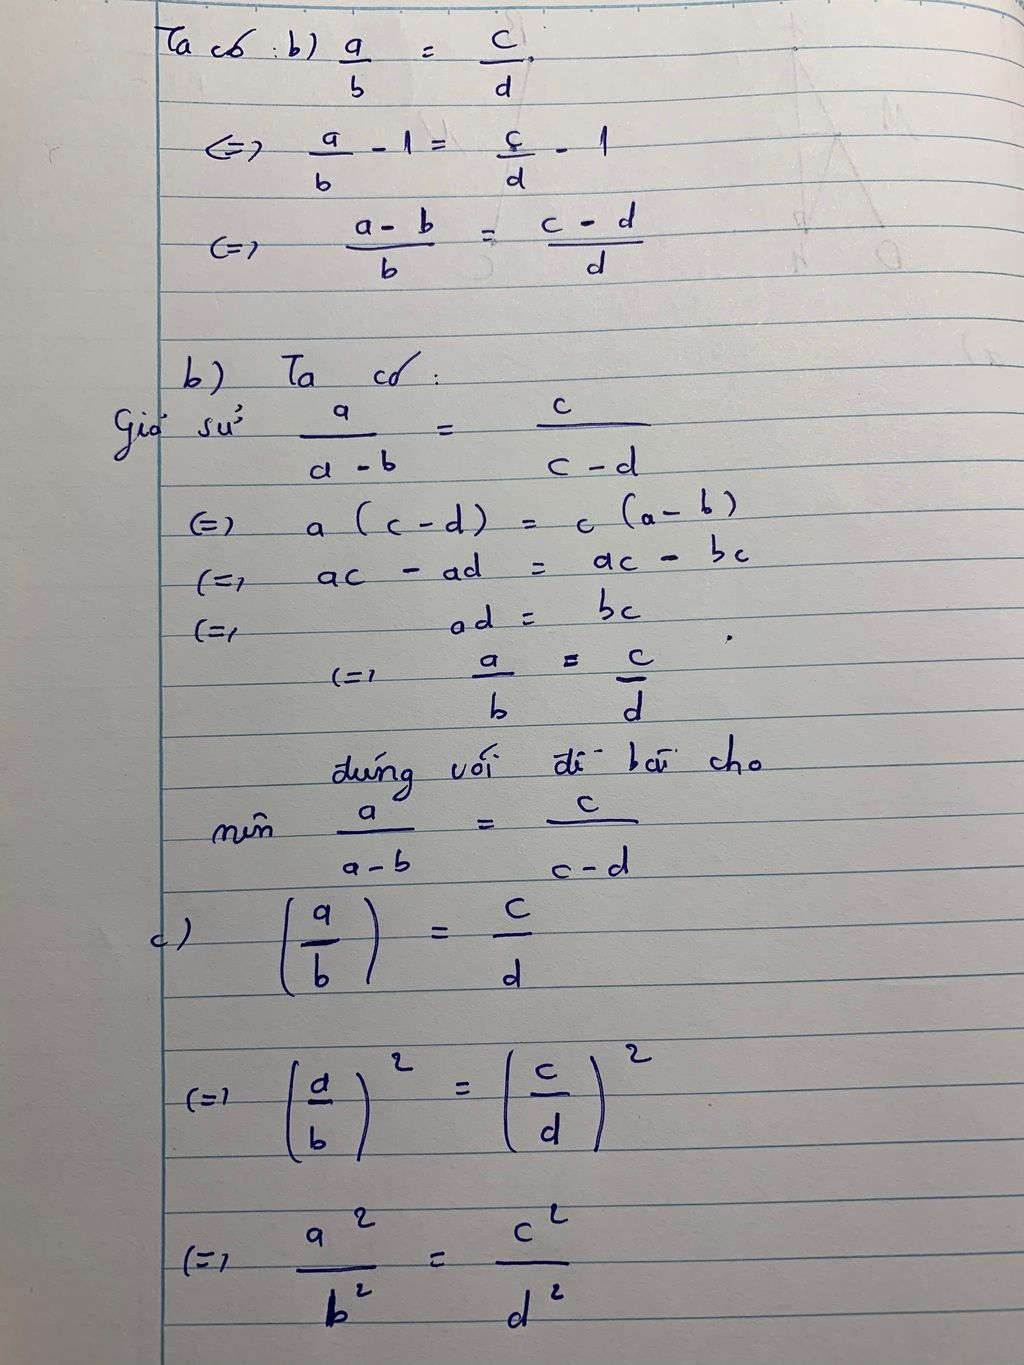 Ta có : b) a/b = c/d.
<=> a/b - 1 = c/d - 1
<=> (a - b)/b = (c - d)/d
b) Ta có :
Giả sử a/(a - b) = c/(c - d)
<=> a (c - d) = c (a - b)
<=> ac - ad = ac - bc
<=> ad = bc
<=> a/b = c/d
đúng với đề bài cho
nên a/(a - b) = c/(c - d)
c) (a/b) = c/d
<=> (a/b)² = (c/d)²
<=> a²/b² = c²/d²